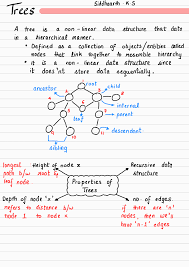 Siddharth . K.S
Trees
A tree is a non-linear data structure that data
in a hierarchical manner.
• Defined as a collection of objects/entities called
nodes that link together to resemble hierarchy
• it is a non-linear data structure since
it does'nt store data sequentially.
root
ancestor
child
internal
parent
leaf
descendent
sibling
longest path b/w root to leaf node
Height of node x
Recursive data structure
Properties of Trees
Depth of node 'x'
refers to distance b/w node 1 to node x
no- of edges.
if there are 'n' nodes, then we'll have 'n-1' edges